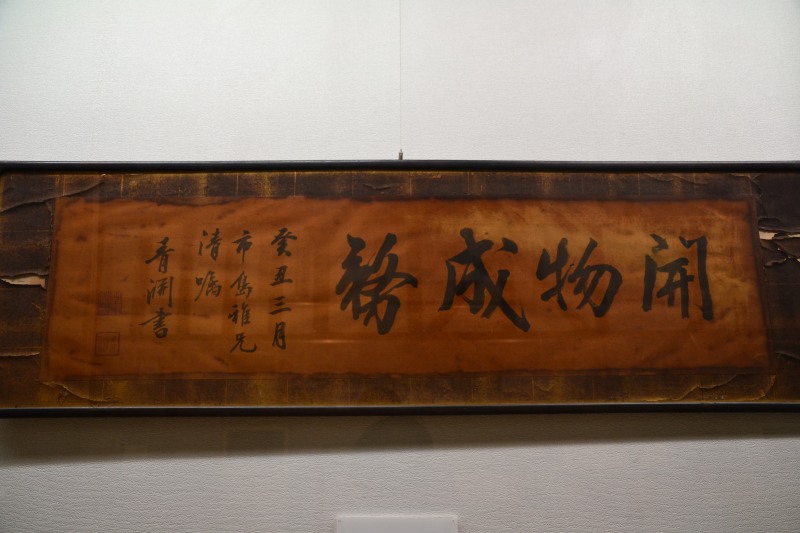 開物成務
癸丑三月
市島雅兄
清嘱
青渊書